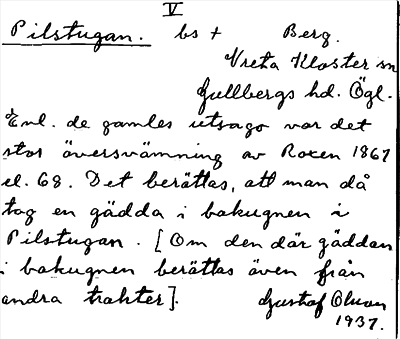 V
Pilstugan. bs + Berg.
Vreta Kloster sn
Gullbergs hd. Ögl.
Enl. de gamles utsago var det
stor översvämning av Roxen 1867
el. 68. Det berättas, att man då
tog en gädda i bakugnen i
Pilstugan. [Om den där gäddan
i bakugnen berättas även från
andra trakter].
Gustaf Olson
1937.